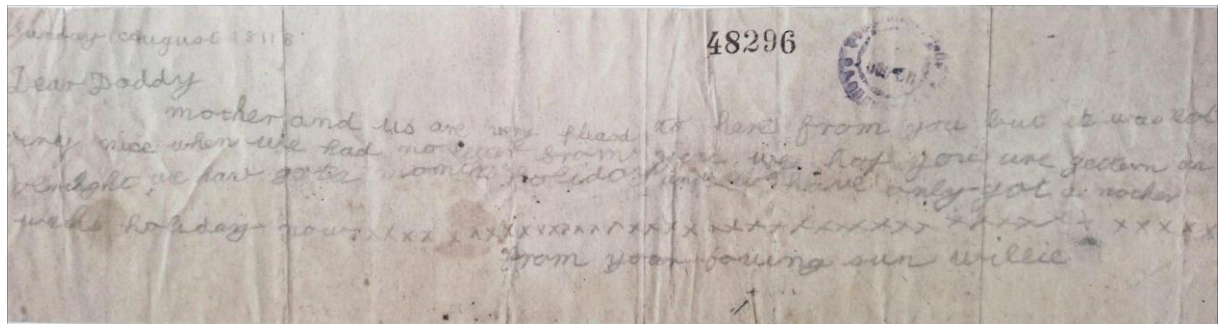 Sunday august 18118
48296
Dear Daddy
mother and us are very pleasd to here from you but it was not
very nice when we had no from you we hop you are gettern on
we hav gote holidays we have only got a nother
weeks holiday now xxxx xxxxxxxxxxxxx xxxxxxxxxxx xxxxxx xxxxx
from your loving sun willie